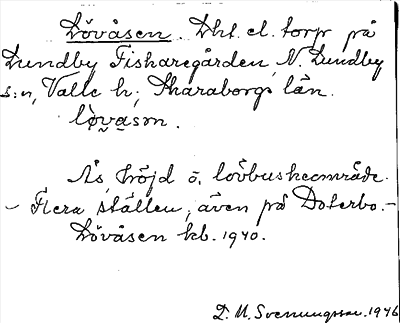 Lövåsen. Dht. el. torp på
Lundby Fiskaregården, N. Lundby
s:n, Valle h; Skaraborgs län.
lø̀vasn.
Ås, höjd o. lövbuskeområde.
– Flera ställen, även på Doterbo. –
Lövåsen kb. 1940.
D. M. Svenungsson. 1946